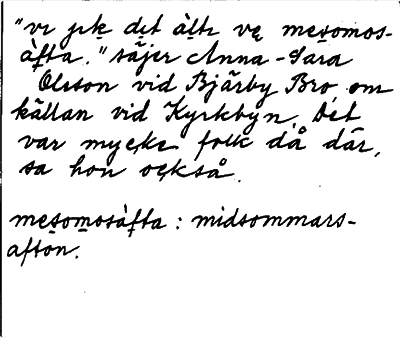 "vi jek det älti ve mesomos-
äfta." säjer Anna-Sara
Olsson vid Bjärby Bro om
källan vid Kyrkbyn. Det
var mycke folk då där,
sa hon också.
mesomosäfta : midsommars-
afton.